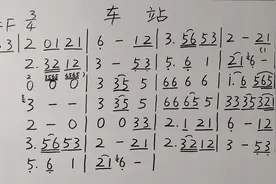 =F 3/4 车 站
3 | 2 0121 | 6 - 12 | 3. 5653 | 2 - 21
2. 3212 | 3 - 53 | 5. 6 1 | 21 6 -
0 0 0 | 3 35 5 | 66 6 6 | 1. 6 565
3 - - | 3 35 5 | 66 65 5 | 333532
2 - 0 | 0 0 33 | 2. 1 21 | 6 - 12
3. 5653 | 2 - 21 | 2. 3212 | 3 - 53
5. 6 1 | 21 6 -